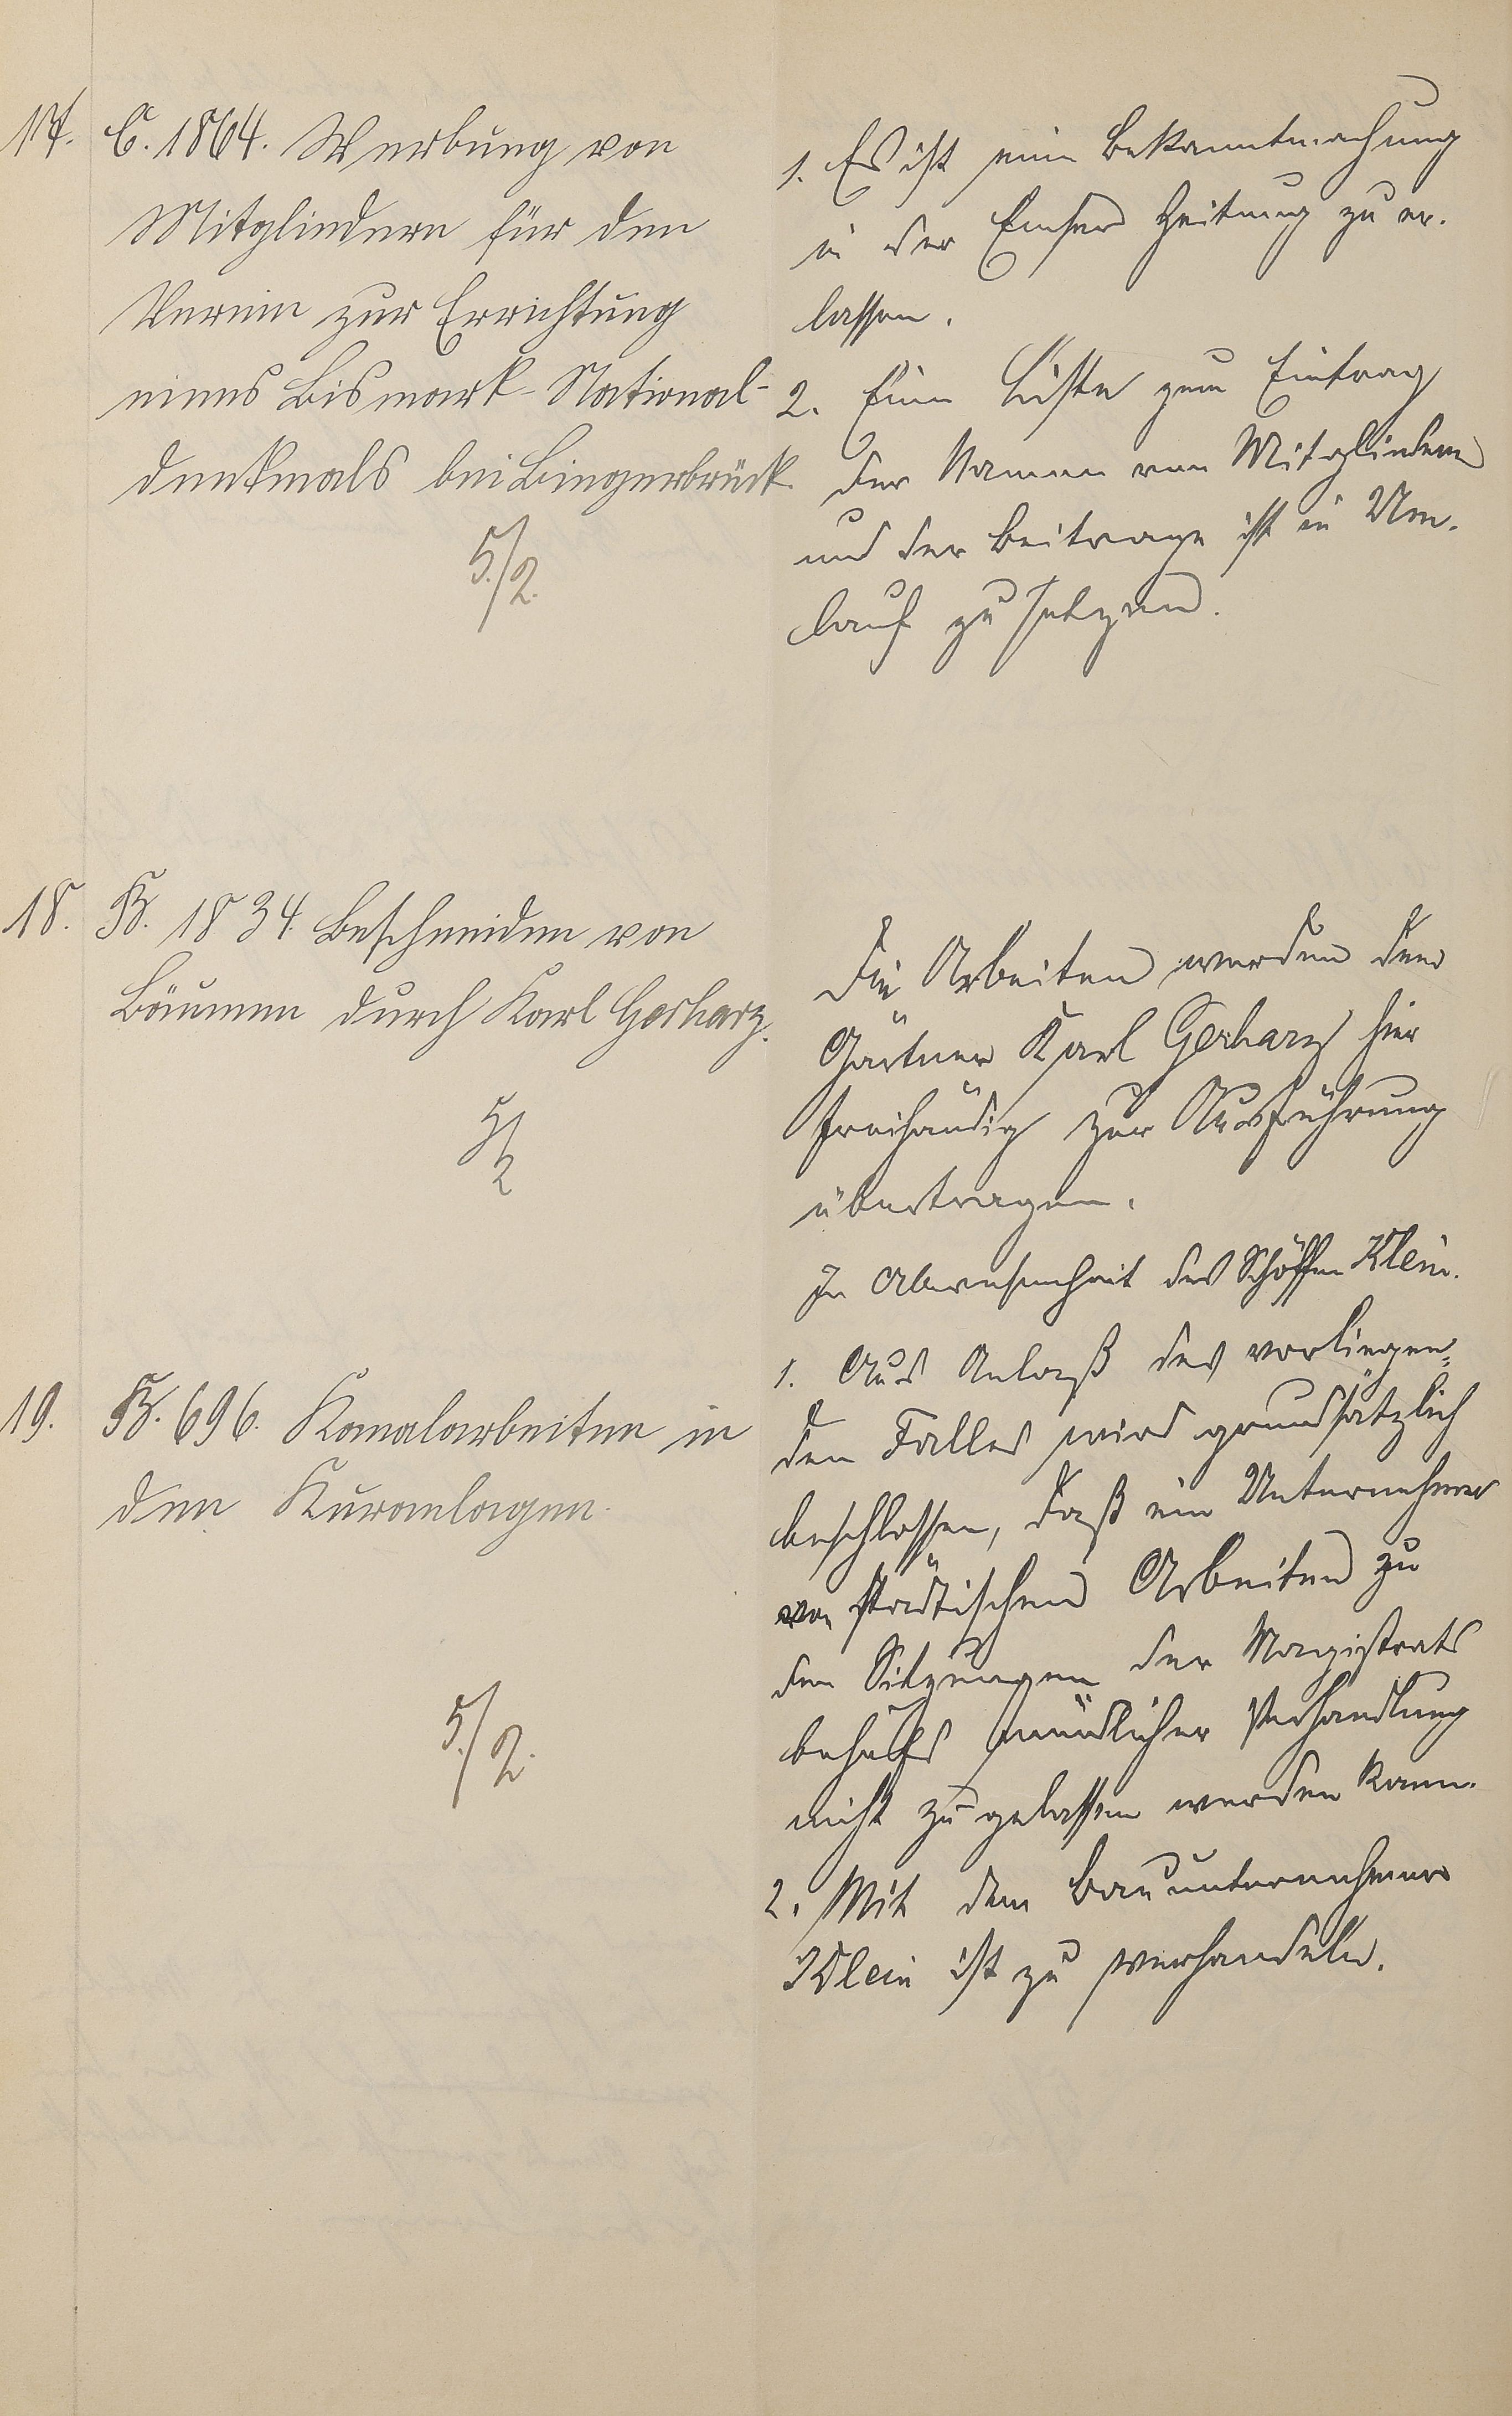 17. C. 1864. Werbung von
Mitgliedern für den
Verein zur Errichtung
eines Bismark-National-
denkmals bei Bingerbrück.
5./2.
1. Es ist eine Bekanntmachung
in der Emser Zeitung zu er-
lassen.
2. Eine Liste zum Eintrag
der Namen von Mitgliedern
und der Beitrage ist in Um-
lauf zu setzen.
18. B. 1834. Beschneiden von
Bäumen durch Karl Gerharz.
5/2
Die Arbeiten werden dem
Gärtner Karl Gerharz hier
freihändig zur Ausführung
übertragen.
In Abwesenheit des Schöffen Klein.
19. B. 696. Kanalarbeiten in
den Kuranlagen.
5./2.
1. Aus Anlaß des vorliegen-
den Falles wird grundsätzlich
beschlossen, daß ein Unternehmer
von städtischen Arbeiten zu
den Sitzungen des Magistrats
behufs mündlicher Verhandlung
nicht zugelassen werden kann.
2. Mit dem Bauunternehmer
Klein ist zu verhandeln.